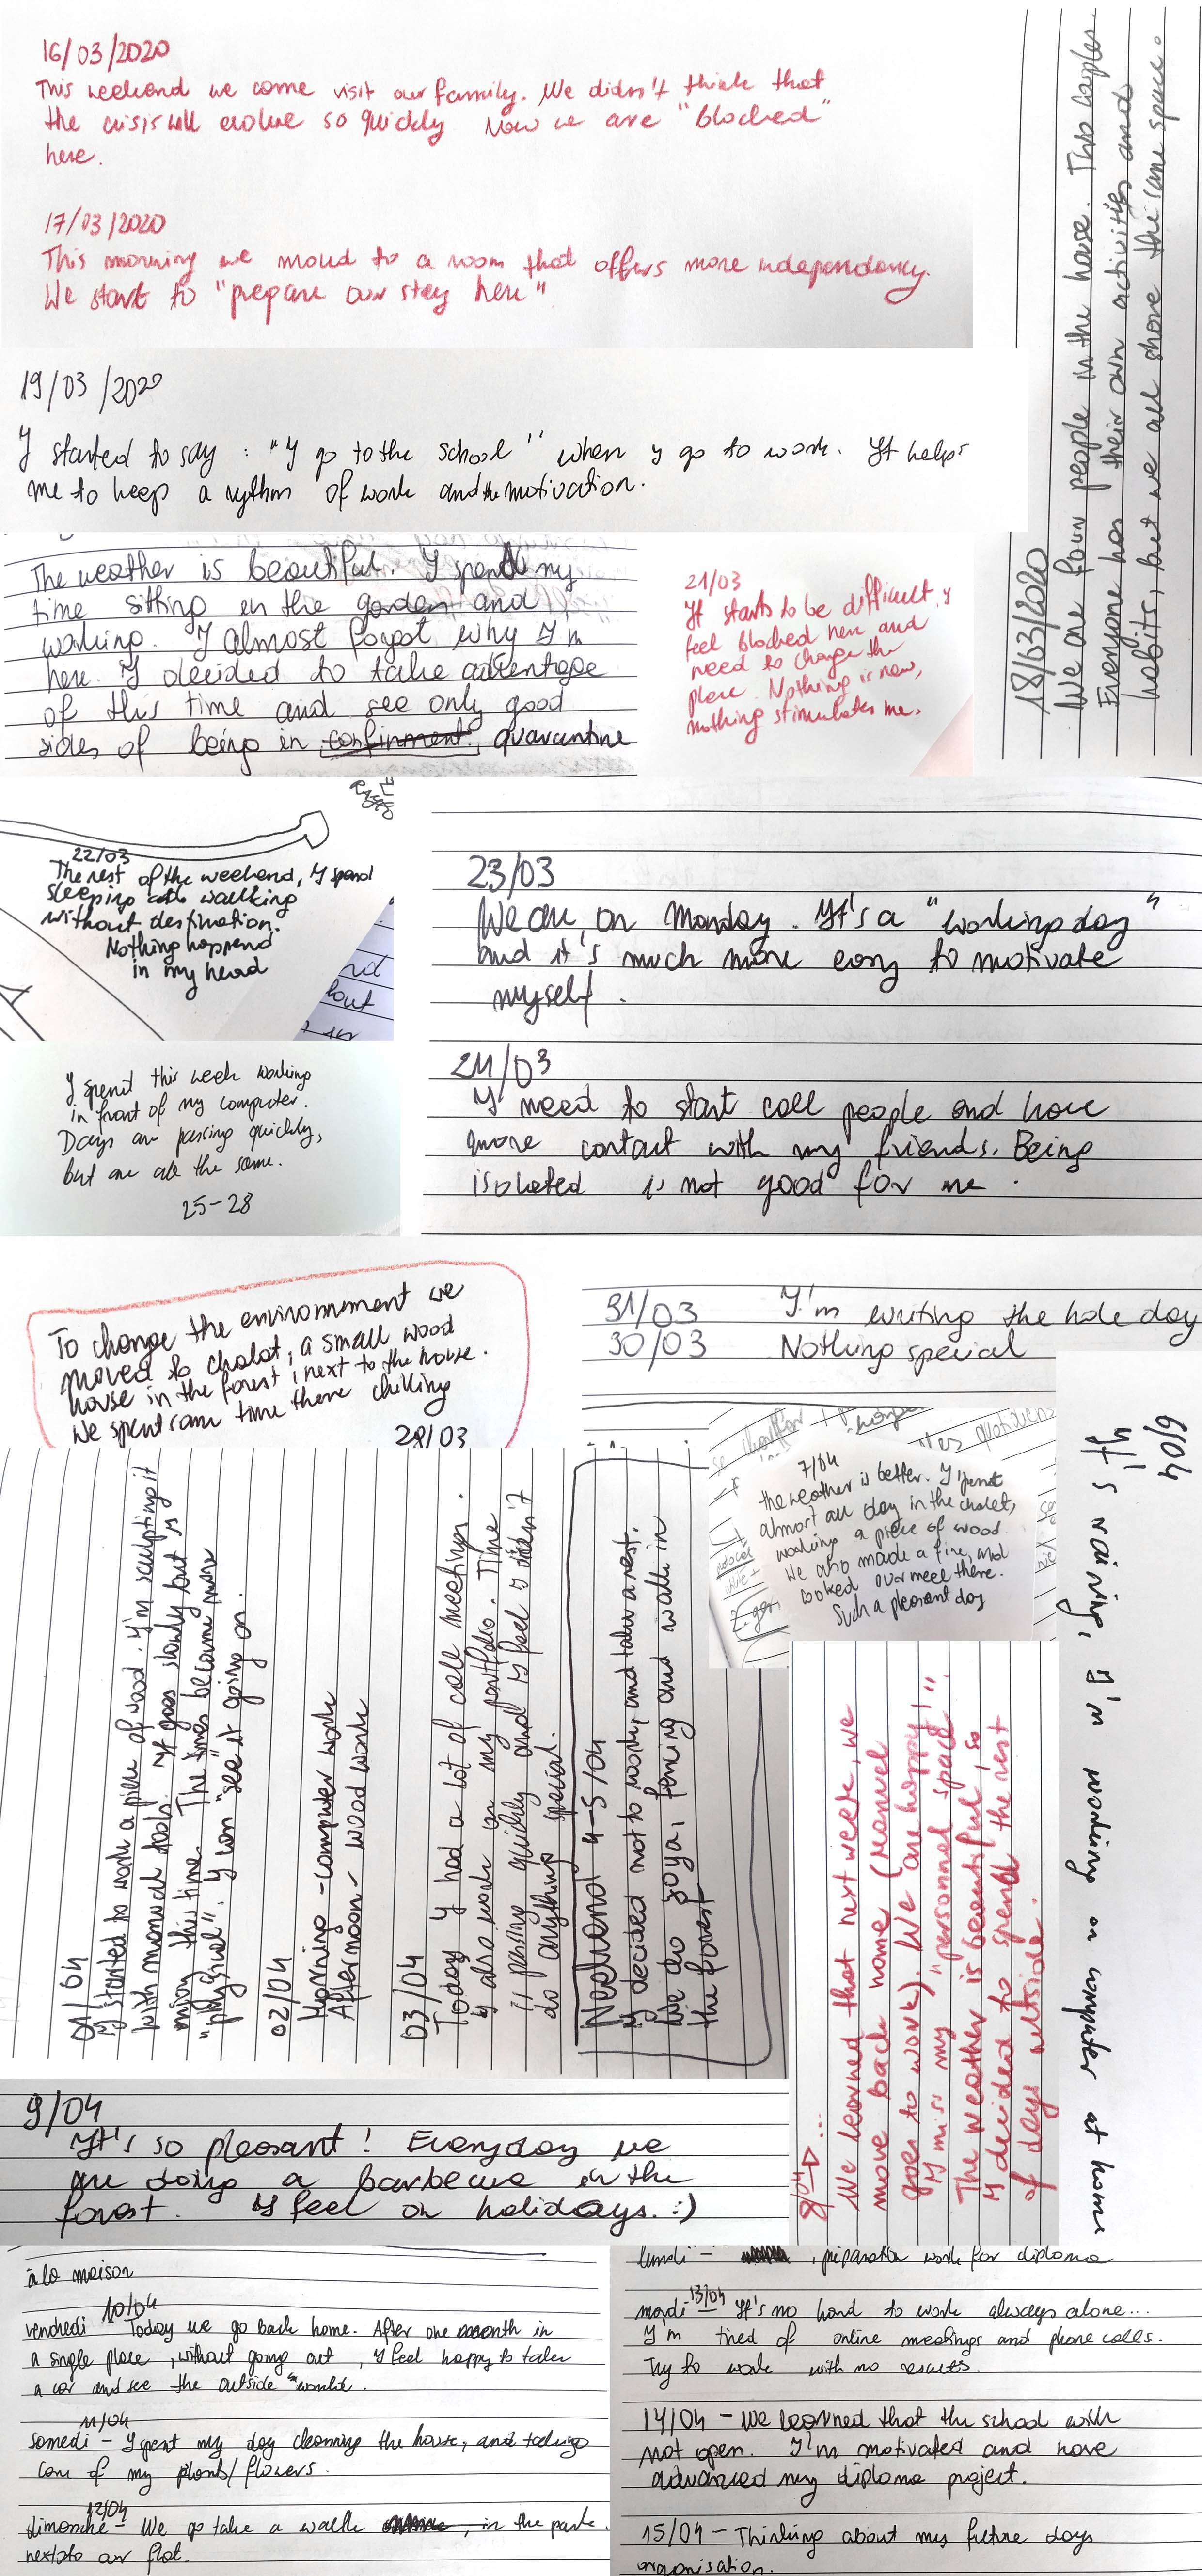 16/03/2020
This weekend we come visit our family. We didn't think that
the crisis will evolve so quickly Now we are "blocked"
here.
17/03/2020
This morning we moved to a room that offers more independency.
We start to "prepare our stay here"
18/03/2020
We are four people in the house. This couples
Everyone has their own activities and
habits, but we all share the same space.
19/03/2020
I started to say : "I go to the school" when I go to work. It helps
me to keep a rythm of work and the motivation.
The weather is beautiful. I spend my
time sitting in the garden and
working. I almost forgot why I'm
here. I decided to take adventage
of this time and see only good
sides of being in confinment quarantine
21/03
It starts to be difficult, I
feel blocked here and
need to change the
place. Nothing is new,
nothing stimulates me.
22/03
The rest of the weekend, I spend
sleeping and walking
without destination.
Nothing happend
in my head
23/03
We are on Monday. It's a "working day"
and it's much more easy to motivate
myself.
24/03
I need to start call people and have
more contact with my friends. Being
isolated is not good for me.
I spend this week working
in front of my computer.
Days are passing quickly,
but are all the same.
25-28
To change the environnement we
moved to chalat, a small wood
house in the forest, next to the house.
We spent some time there chilling
29/03
31/03 I'm writing the hole day
30/03 Nothing special
01/04
I started to work a piece of wood. I'm sculpting it
with manual tools. It goes slowly but I
enjoy this time. The times became more
"physical". I can "see it going on.
02/04
Morning - computer work
Afternoon - wood work
03/04
Today I had a lot of call meetings.
I also work on my portfolio. Time
is passing quickly and I feel I didn't
do anything special.
Weekend 4-5/04
I decided not to work, and take a rest.
We do yoga, fencing and walk in
the forest
6/04
It's raining, I'm working on computer at home
7/04
the weather is better. I spend
almost all day in the chalet,
working a piece of wood.
We also made a fire, and
cooked our meel there.
Such a pleasent day
8/04 → ...
We learned that next week, we
move back home (Manuel
goes to work). We are happy!
I miss my "personnel space".
The weather is beautiful, so
I decided to spend the rest
of days outside.
9/04
It's so pleasant! Everyday we
are doing a barbecue in the
forest. I feel on holidays. :)
à la maison
vendredi 10/04 Today we go back home. After one month in
a single place, without going out, I feel happy to take
a car and see the outside "world".
11/04
samedi - I spent my day cleaning the house, and taking
care of my plants/flowers.
12/04
dimanche - We go take a walk in the park
next to our flat.
lundi - , preparation work for diploma
mardi 13/04 It's so hard to work always alone...
I'm tired of online meetings and phone calls.
Try to work with no results.
14/04 - We learned that the school will
not open. I'm motivated and have
advanced my diploma project.
15/04 - Thinking about my future days
organisation.